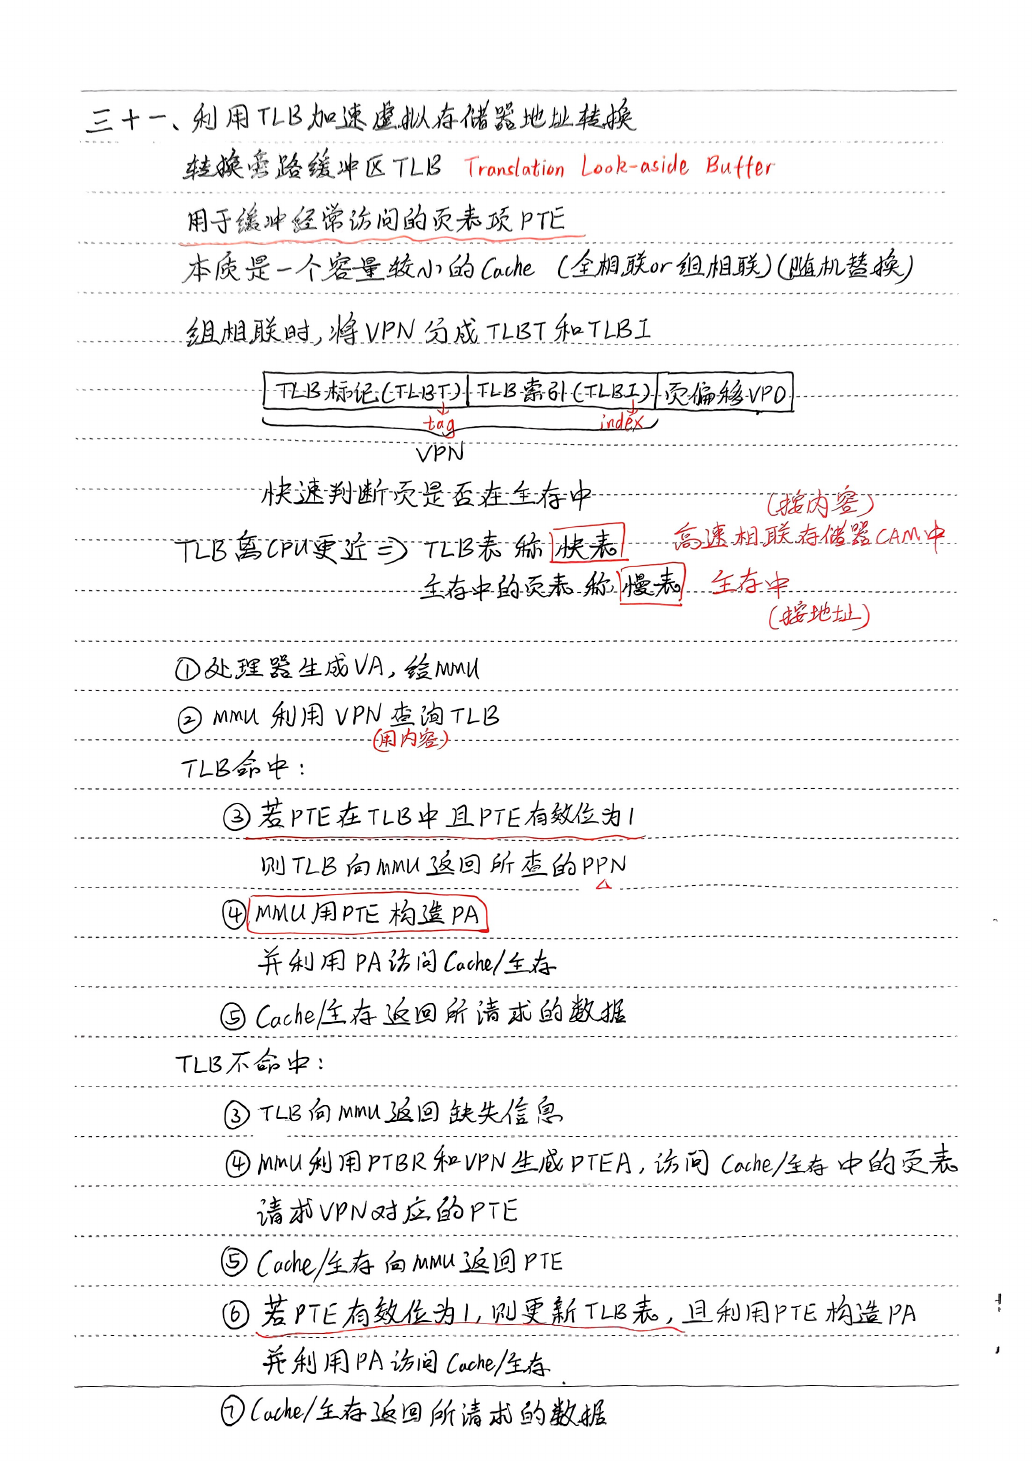 三十一、利用TLB加速虚拟存储器地址转换
转换旁路缓冲区TLB Translation Look-aside Buffer
用于缓冲经常访问的页表项PTE
本质是一个容量较小的Cache (全相联or组相联)(随机替换)
组相联时,将VPN分成TLBT和TLBI
TLB标记(TLBT) TLB索引(TLBI) 页偏移VPO
tag index
VPN
快速判断页是否在主存中
(按内容)
TLB离CPU更近⇒ TLB表 称 快表 高速相联存储器CAM中
主存中的页表 称 慢表 主存中
(按地址)
①处理器生成VA,给MMU
② MMU利用VPN查询TLB
(用内容)
TLB命中:
③若PTE在TLB中且PTE有效位为1
则TLB向MMU返回所查的PPN
④MMU用PTE构造PA
并利用PA访问Cache/主存
⑤ Cache/主存返回所请求的数据
TLB不命中:
③ TLB向MMU返回缺失信息
④ MMU利用PTBR和VPN生成PTEA,访问Cache/主存中的页表
请求VPN对应的PTE
⑤ Cache/主存向MMU返回PTE
⑥ 若PTE有效位为1,则更新TLB表,且利用PTE构造PA
并利用PA访问Cache/主存.
⑦Cache/主存返回所请求的数据